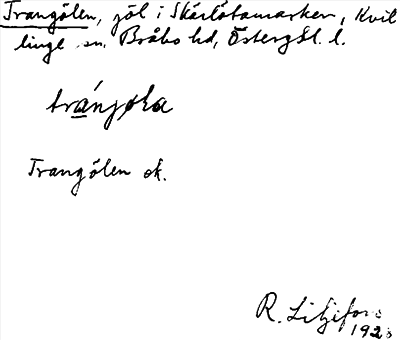 Trangölen, göl i Skärlötamarken, Kvil
linge sn. Bråbo hd, Östergötl. l.
Trangölen ek.
R. Liljefors